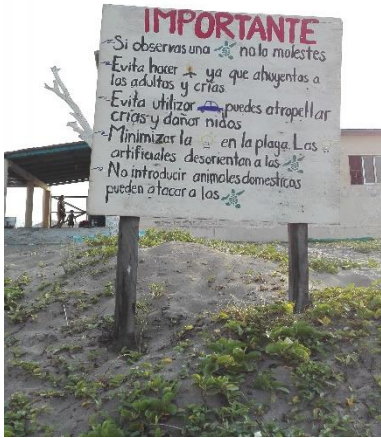 IMPORTANTE
-Si observas una no la molestes
-Evita hacer ya que ahuyentas a
los adultos y crías
-Evita utilizar puedes atropellar
crías y dañar nidos
-Minimizar la en la playa. Las
artificiales desorientan a las
-No introducir animales domesticos
pueden atacar a las